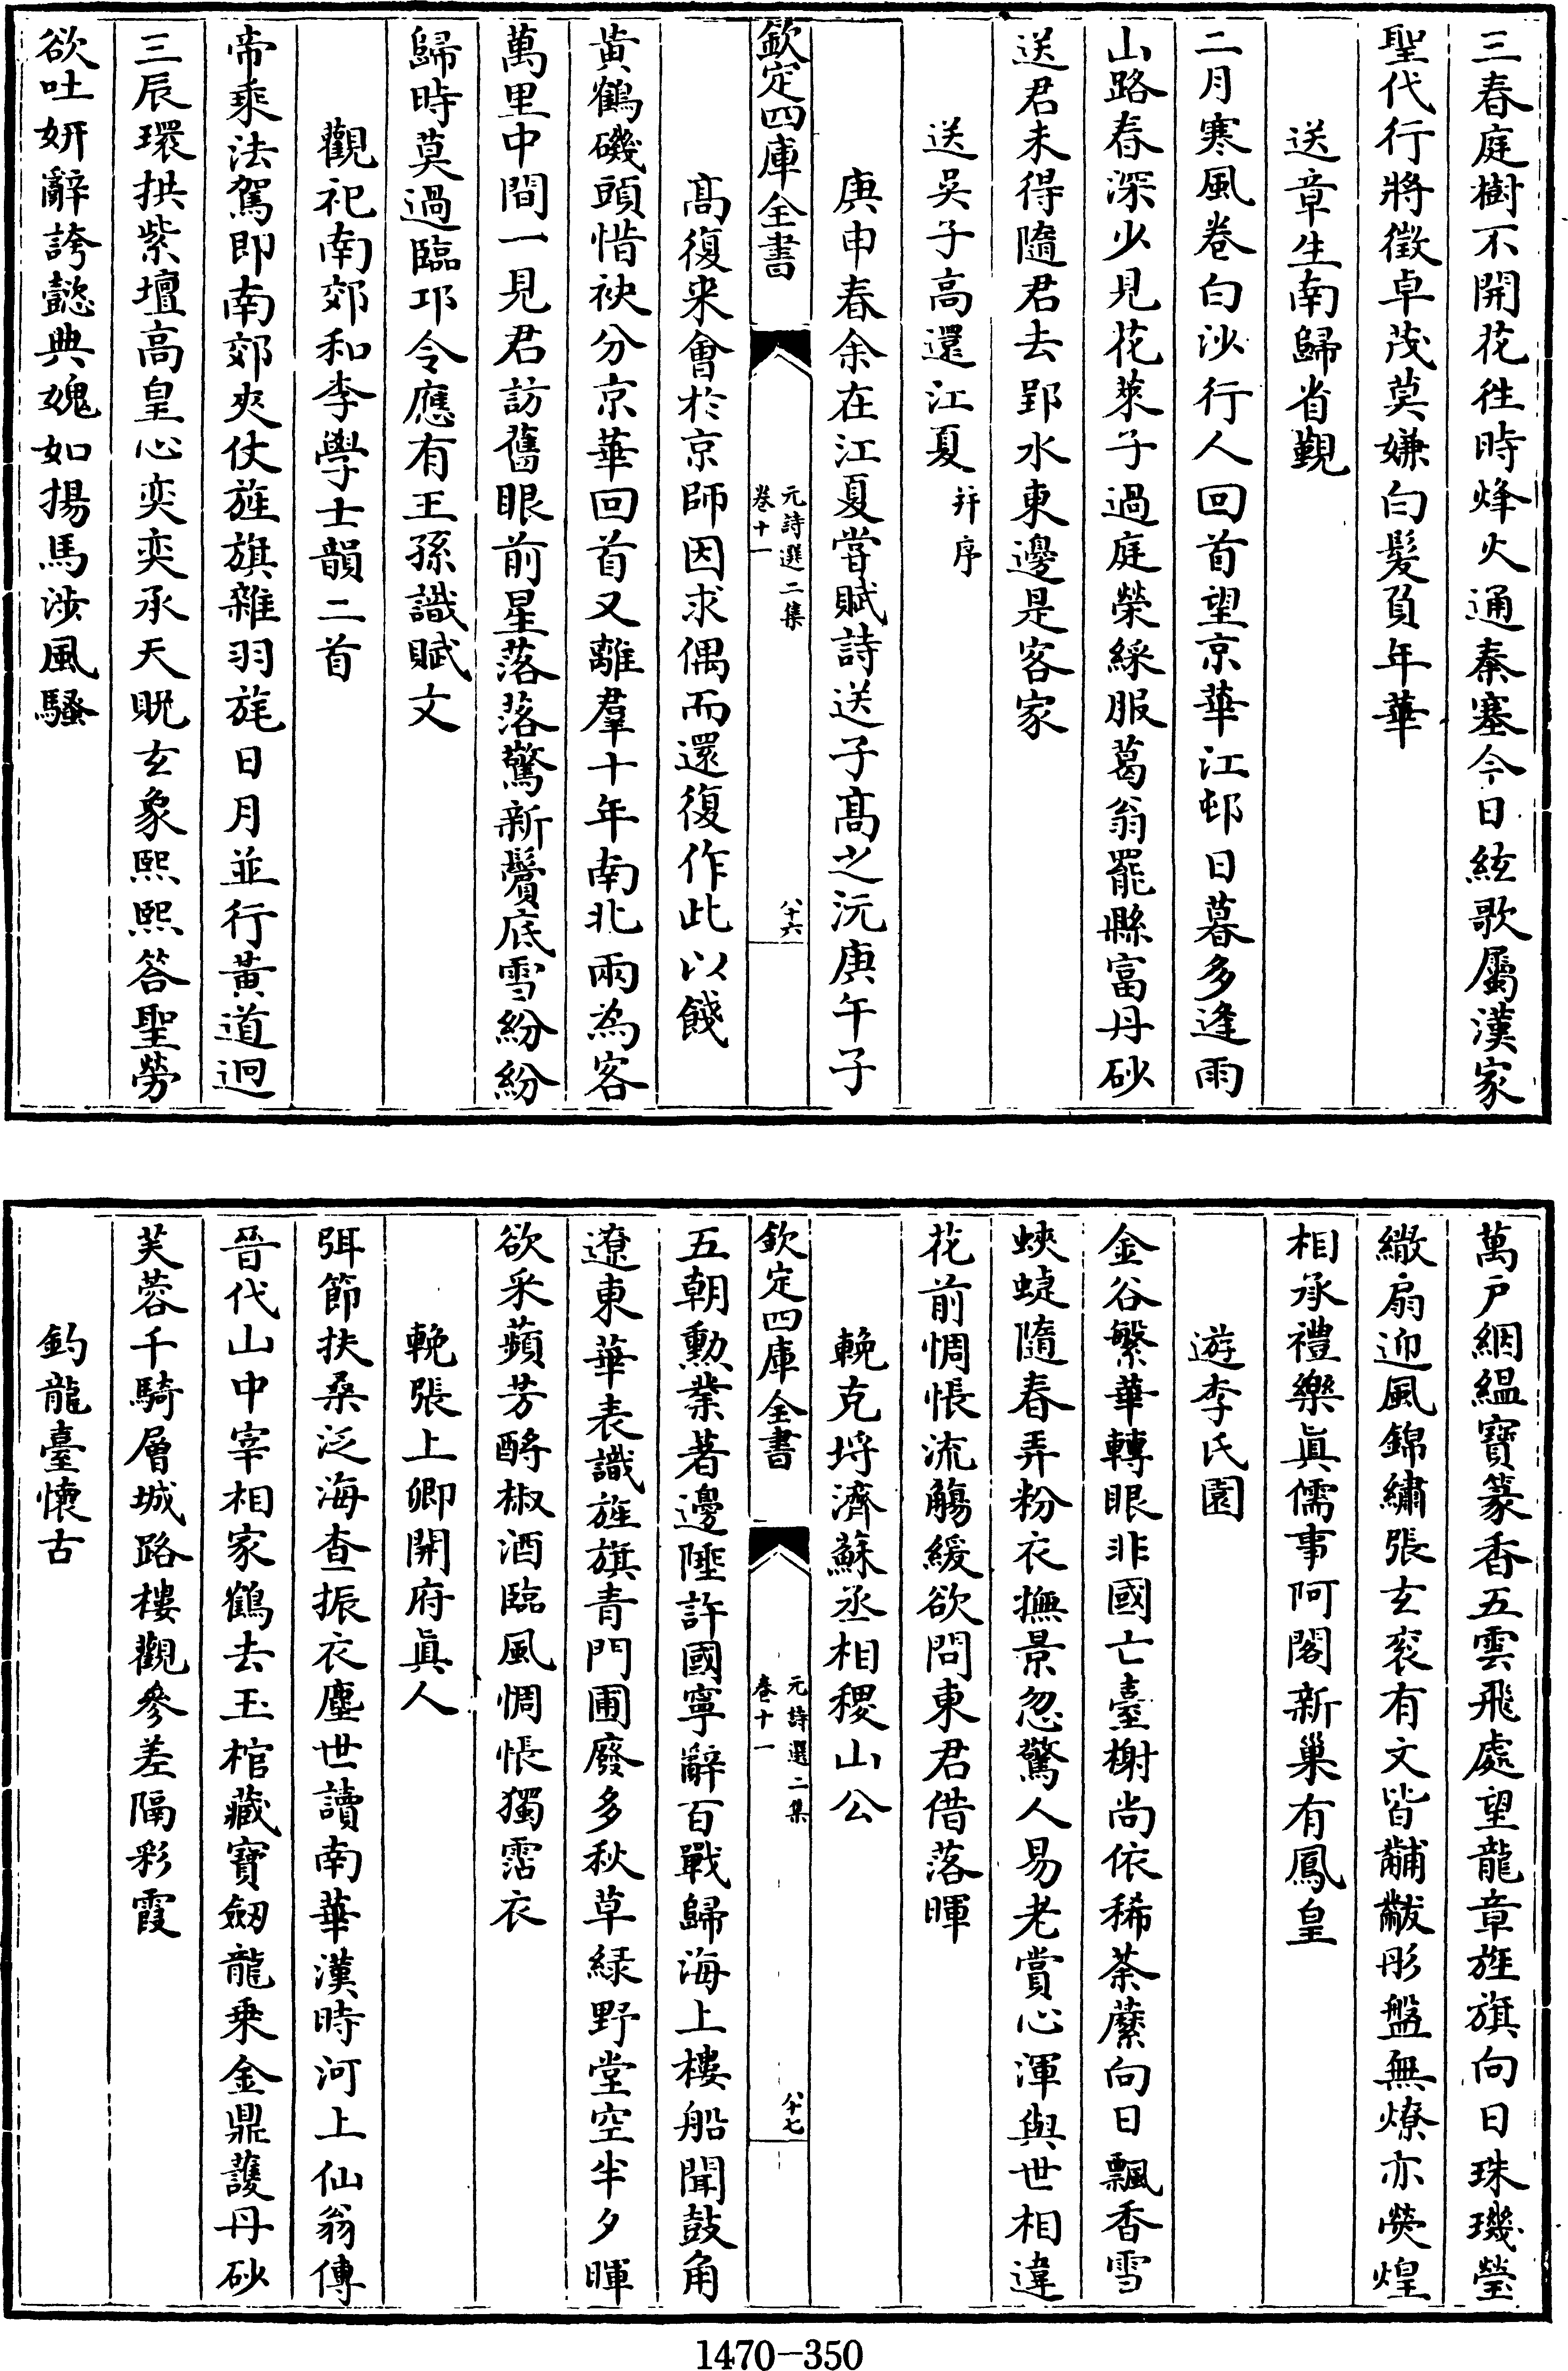 三春庭樹不開花徃時烽火通秦塞今日絃歌屬漢家
聖代行將徴卓茂莫嫌白髪負年華
送章生南歸省觀
二月寒風卷白沙行人回首望京華江邨日暮多逢雨
山路春深少見花萊子過庭榮綵服葛翁罷縣富丹砂
送君未得隨君去郢水東邊是客家
送吳子高還江夏 并序
庚申春余在江夏嘗賦詩送子髙之沅庚午子
欽定四庫全書
元詩選二集
卷十一
八十六
髙復来會於京師因求偶而還復作此以餞
黄鶴磯頭惜袂分京華回首又離羣十年南北兩為客
萬里中間一見君訪舊眼前星落落驚新鬢底雪紛紛
歸時莫過臨邛令應有王孫識賦文
觀祀南郊和李學士韻二首
帝乘法駕即南郊夾仗旌旗雜羽旄日月並行黃道迥
三辰環拱紫壇高皇心奕奕承天貺玄象熙熙答聖勞
欲吐妍辭誇懿典媿如揚馬涉風騷
萬戸絪緼寶篆香五雲飛處望龍章旌旗向日珠璣瑩
繖扇迎風錦繡張玄衮有文皆黼黻彤盤無燎亦熒煌
相承禮樂眞儒事阿閣新巢有鳳皇
遊李氏園
金谷繁華轉眼非國亡臺榭尚依稀荼蘼向日飄香雪
蛺蜨隨春弄粉衣撫景忽驚人易老賞心渾與世相違
花前惆悵流觴緩欲問東君借落暉
輓克埒濟蘇丞相稷山公
欽定四庫全書
元詩選二集
卷十一
八十七
五朝勲業著邊陲許國寧辭百戰歸海上樓船聞鼓角
遼東華表識旌旗青門圃廢多秋草緑野堂空半夕暉
欲采蘋芳酹椒酒臨風惆悵獨霑衣
輓張上卿開府眞人
弭節扶桑泛海查振衣塵世讀南華漢時河上仙翁傳
晉代山中宰相家鶴去玉棺藏寶劔龍乗金鼎護丹砂
芙蓉千騎層城路樓觀參差隔彩霞
釣龍臺懷古
1470-350